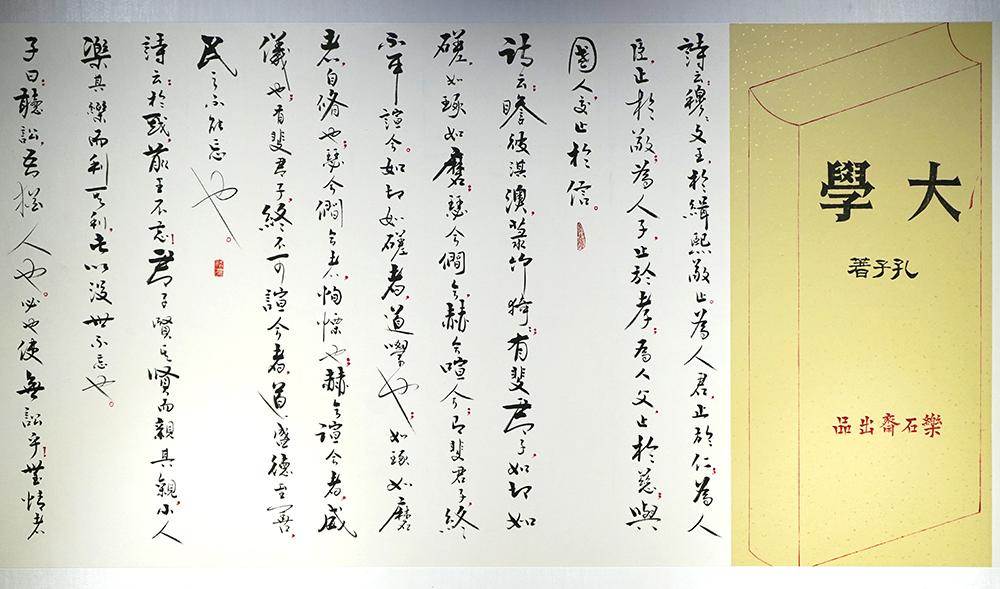 大學
孔子著
樂石齋出品
詩云：穆、文王，於緝熙敬止。為人君，止於仁；為人
臣，止於敬；為人子，止於孝；為人父，止於慈；與
國人交，止於信。
詩云：瞻彼淇澳，菉竹猗、；有斐君子，如切如
磋，如琢如磨；瑟兮僩兮，赫兮喧兮；有斐君子，終
不可諠兮。如切如磋者，道學也；如琢如磨
者，自脩也；瑟兮僩兮者，恂慄也；赫兮諠兮者，威
儀也；有斐君子，終不可諠兮者，道盛德至善，
民之不能忘也。
詩云：於戲，前王不忘！君子賢其賢而親其親，小人
樂其樂而利其利，此以沒世不忘也。
子曰：聽訟，吾猶人也。必也使無訟乎！無情者